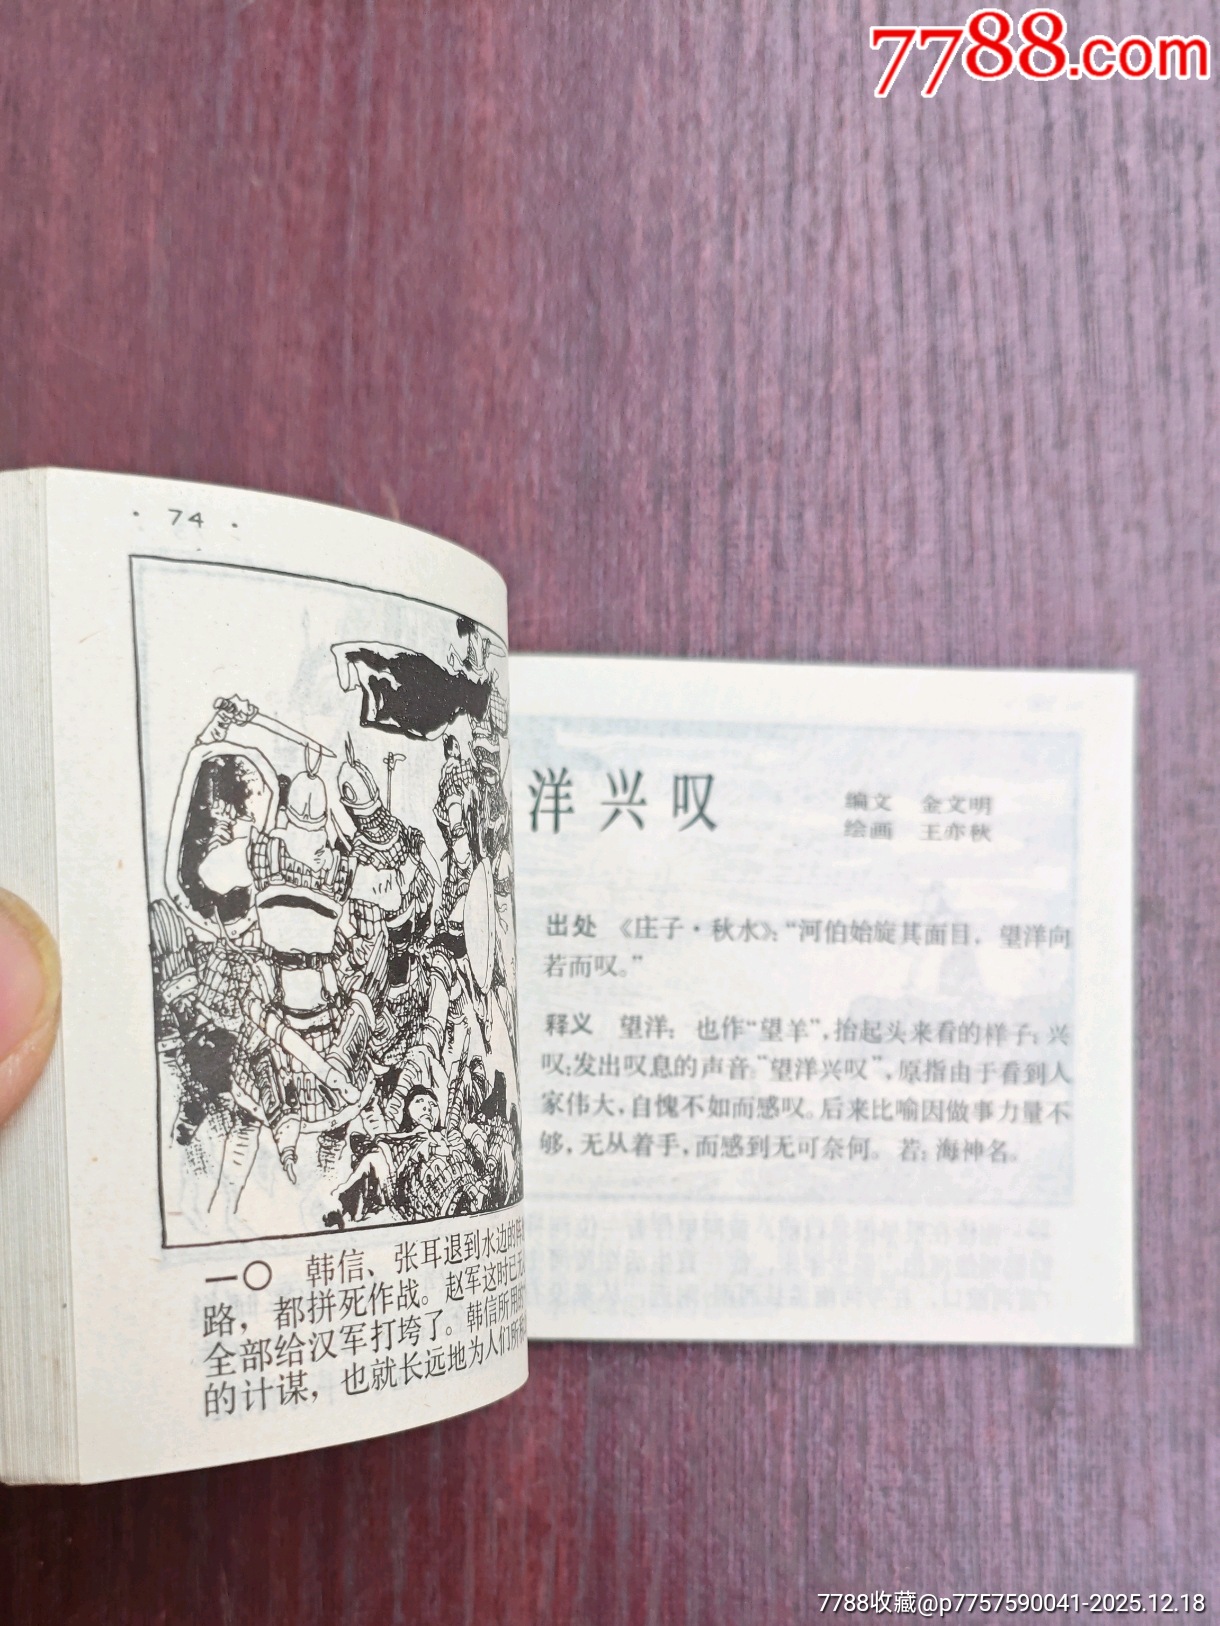 7788.com
· 74 ·
一〇 韩信、张耳退到水边的
路，都拼死作战。赵军这时已无
全部给汉军打垮了。韩信所用的
的计谋，也就长远地为人们所
洋兴叹
编文 金文明
绘画 王亦秋
出处 《庄子·秋水》：“河伯始旋其面目，望洋向
若而叹。”
释义 望洋：也作“望羊”，抬起头来看的样子；兴
叹：发出叹息的声音。“望洋兴叹”，原指由于看到人
家伟大，自愧不如而感叹。后来比喻因做事力量不
够，无从着手，而感到无可奈何。若：海神名。
7788收藏@p7757590041-2025.12.18